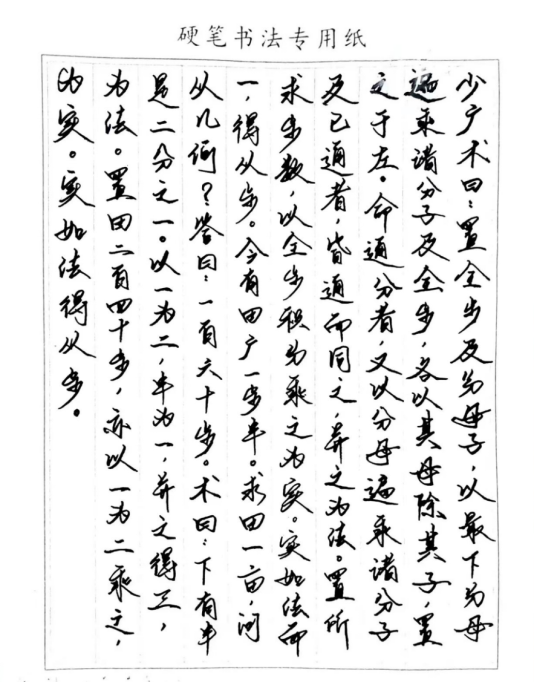 硬笔书法专用纸
少广术曰：置全步及分母子，以最下分母
遍乘诸分子及全步，各以其母除其子，置
之于左。命通分者，又以分母遍乘诸分子
及已通者，皆通而同之，并之为法。置所
求步数，以全步积分乘之为实。实如法而
一，得从步。今有田广一步半。求田一亩，问
从几何？答曰：一百六十步。术曰：下有半
是二分之一。以一为二，半为一，并之得三，
为法。置田二百四十步，亦以一为二乘之，
为实。实如法得从步。